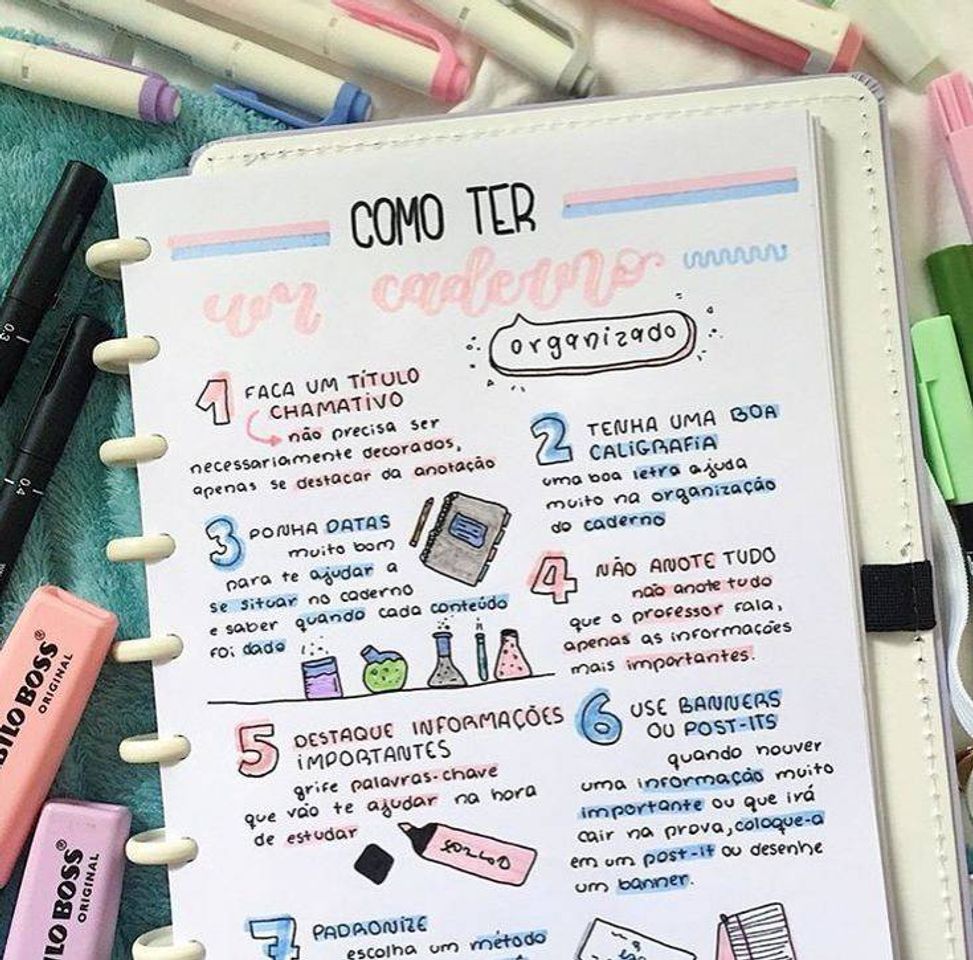 COMO TER
um caderno
organizado
1 FAÇA UM TÍTULO
CHAMATIVO
não precisa ser
necessariamente decorados,
apenas se destacar da anotação
2 TENHA UMA BOA
CALIGRAFIA
uma boa letra ajuda
muito na organização
do caderno
3 PONHA DATAS
muito bom
para te ajudar a
se situar no caderno
e saber quando cada conteúdo
foi dado
4 NÃO ANOTE TUDO
não anote tudo
que o professor fala,
apenas as informações
mais importantes.
5 DESTAQUE INFORMAÇÕES
IMPORTANTES
grife palavras-chave
que vão te ajudar na hora
de estudar
6 USE BANNERS
OU POST-ITS
quando houver
uma informação muito
importante ou que irá
cair na prova, coloque-a
em um post-it ou desenhe
um banner.
7 PADRONIZE
escolha um método
0.3
0.4
BILO BOSS
ORIGINAL
LO BOSS
ORIGINAL